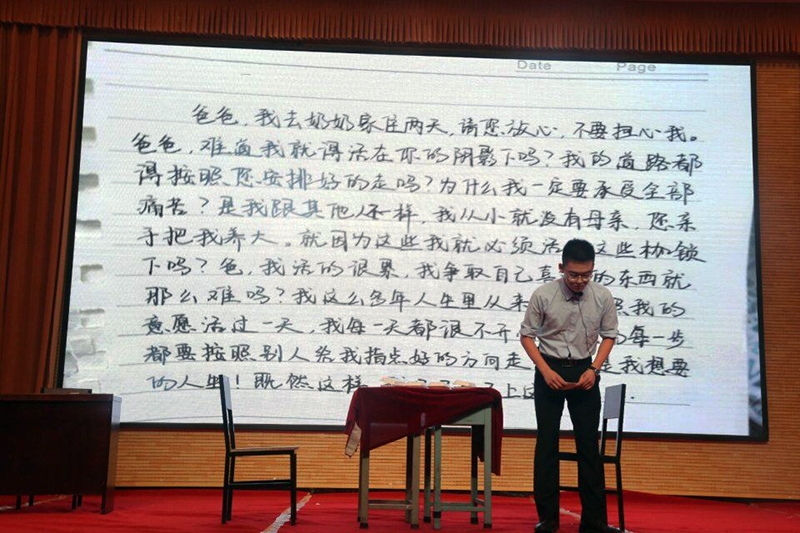 Date Page
爸爸，我去奶奶家住两天，请您放心，不要担心我。
爸爸，难道我就得活在你的阴影下吗？我的道路都
得按照您安排好的走吗？为什么我一定要承受全部
痛苦？是我跟其他人不一样，我从小就没有母亲，您亲
手把我养大。就因为这些我就必须活 这些枷锁
下吗？爸，我活的很累，我争取自己真 的东西就
那么难吗？我这么多年人生里从来 照我的
意愿活过一天，我每一天都很不开 的每一步
都要按照别人给我指点好的方向走 是我想要
的人生！既然这样 上